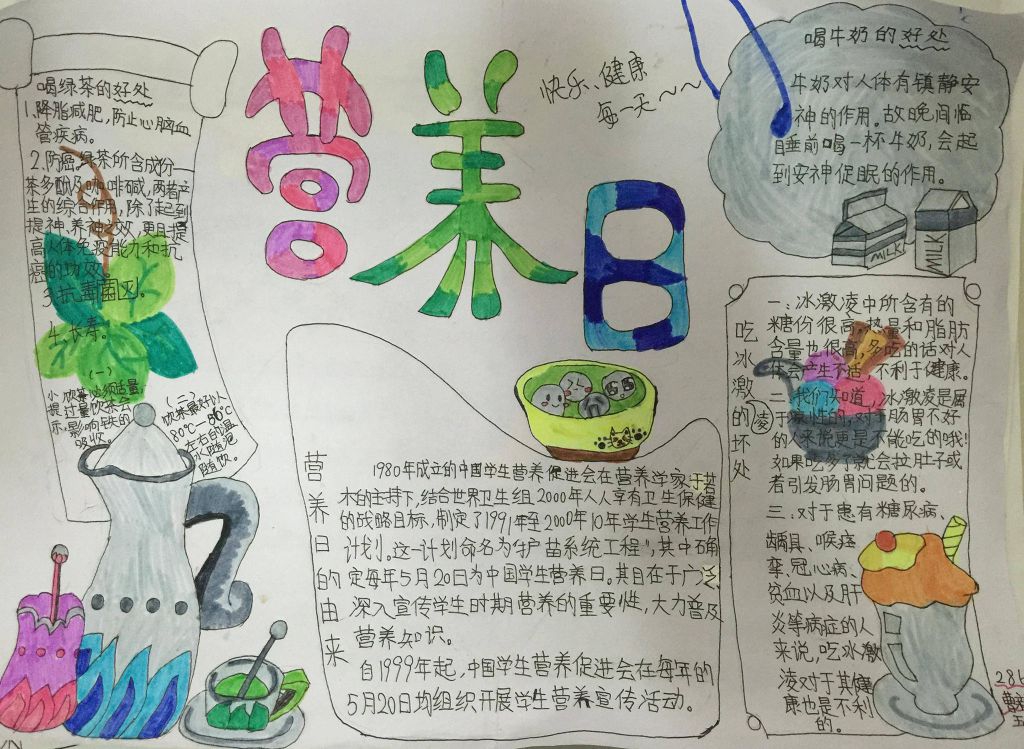 营养日
快乐、健康
每一天～～
喝绿茶的好处
1.降脂减肥,防止心脑血
管疾病。
2.防癌,绿茶所含成份—
茶多酚及咖啡碱,两者产
生的综合作用,除了起到
提神、养神之效,更且提
高人体免疫能力和抗
癌的功效。
3.抗毒菌。
4.长寿。
小提示
(一)
饮茶必须适量,
过量饮茶会
影响铁的
吸收。
(二)
饮茶最好以
80℃—86℃
左右的温
水随泡
随饮。
喝牛奶的好处
牛奶对人体有镇静安
神的作用。故晚间临
睡前喝一杯牛奶,会起
到安神促眠的作用。
MILK
MILK
营养日的由来
1980年成立的中国学生营养促进会在营养学家于若
木的主持下,结合世界卫生组2000年人人享有卫生保健
的战略目标,制定了1991年至2000年10年学生营养工作
计划。这一计划命名为“护苗系统工程”,其中确
定每年5月20日为中国学生营养日。其目在于广泛
深入宣传学生时期营养的重要性,大力普及
营养知识。
自1999年起,中国学生营养促进会在每年的
5月20日均组织开展学生营养宣传活动。
吃冰激凌的坏处
一、冰激凌中所含有的
糖份很高,热量和脂肪
含量也很高,多吃的话对人
体会产生不适,不利于健康。
二、我们知道,冰激凌是属
于凉性的,对于肠胃不好
的人来说更是不能吃的哦!
如果吃多了就会拉肚子或
者引发肠胃问题的。
三、对于患有糖尿病、
龋具、喉痉
挛、冠心病、
贫血以及肝
炎等病症的人
来说,吃冰激
凌对于其健
康也是不利
的。